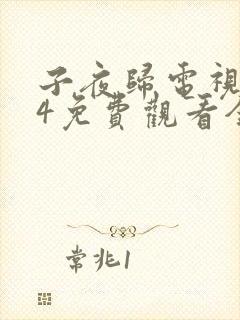 子夜歸電視
4免費觀看全
常兆1